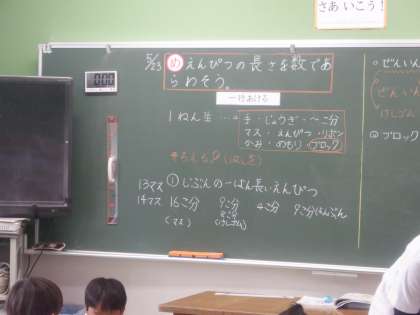 さあ いこう！
5/23
め えんぴつの長さを数であ
らわそう。
0:00
一行あける
1ねん生 …→ 手・じょうぎ・〜こ分
マス・えんぴつ・リボン
かみ・めもり・ブロック
そろえる （はしを）
13マス ① じぶんの一ばん長いえんぴつ
14マス 16こ分 9こ分 4こ分 9こ分はんぶん
（マス） （けしゴム）
ぜんいん
けしゴム
② ブロック